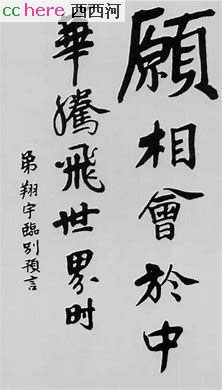 cchere 西西河
願相會於中
華騰飛世界时
弟翔宇臨别預言